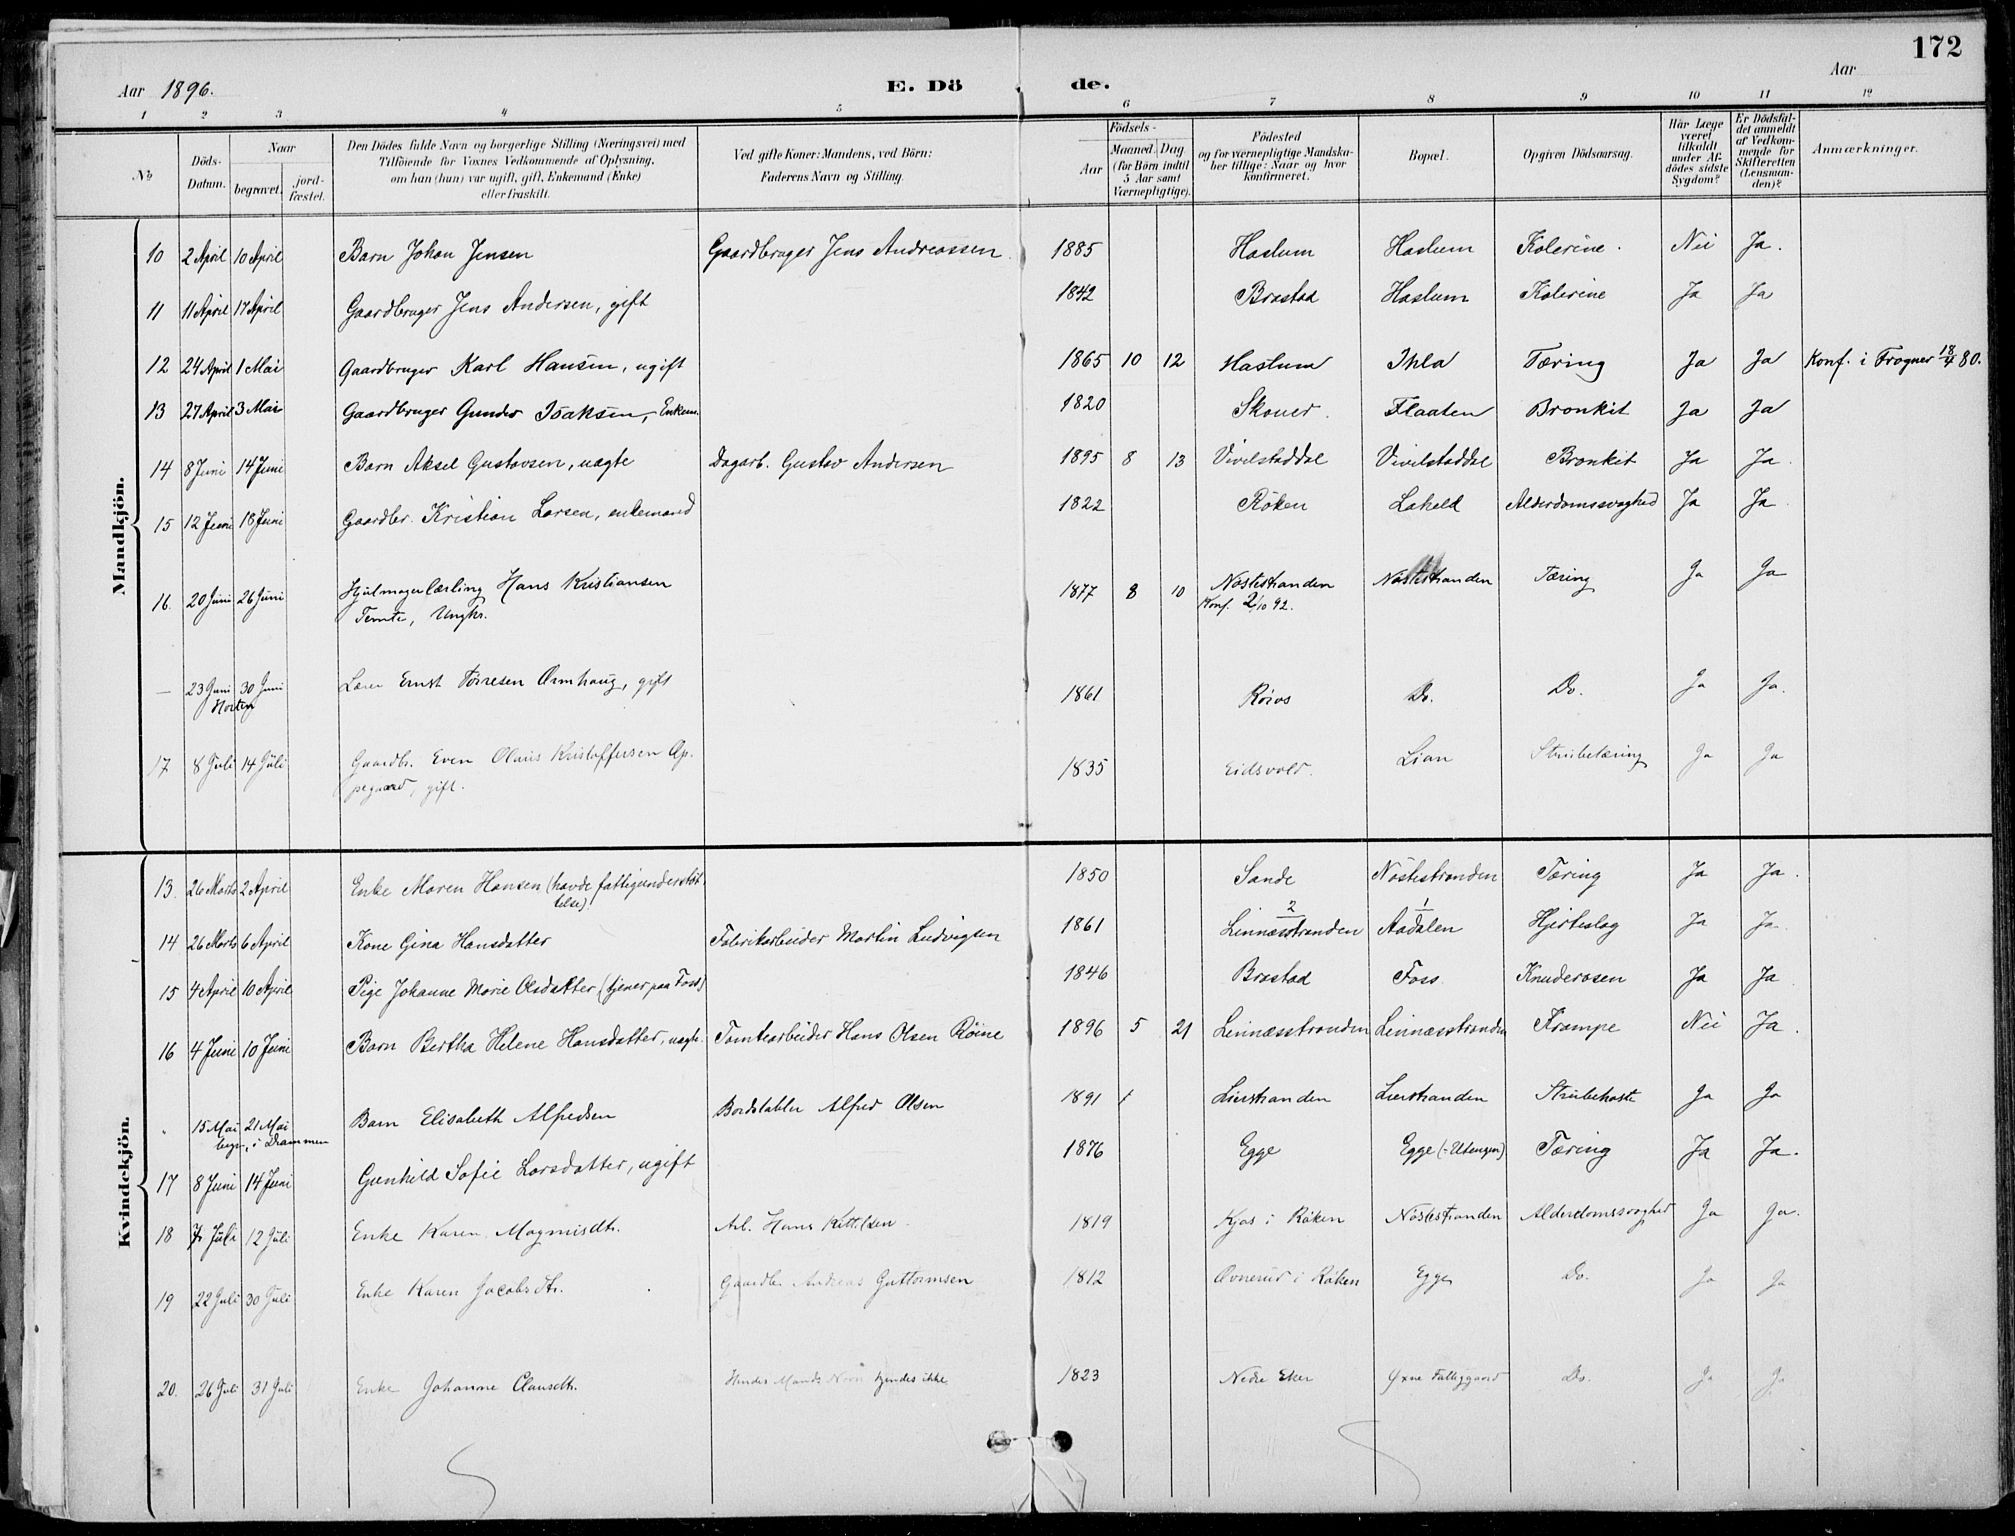 172
Aar 1896. E. Dö de. Aar
1 2 3 4 5 6 7 8 9 10 11 12
No
Döds-Datum.
Naar
begravet.
jord-fæstet.
Den Dödes fulde Navn og borgerlige Stilling (Næringsvei) med
Tilföiende for Voxnes Vedkommende af Oplysning,
om han (hun) var ugift, gift, Enkemand (Enke)
eller fraskilt.
Ved gifte Koner: Mandens, ved Börn:
Faderens Navn og Stilling.
Födsels-
Aar
Maaned. Dag.
(for Börn indtil
5 Aar samt
Værnepligtige).
Födested
og for værnepligtige Mandska-
ber tillige: Naar og hvor
konfirmeret.
Bopæl.
Opgiven Dödsaarsag.
Har Læge
været
tilkaldt
under Af-
dödes sidste
Sygdom?
Er Dödsfal-
det anmeldt
af Vedkom-
mende for
Skifteretten
(Lensman-
den)?
Anmærkninger.
Mandkjön.
10 2 April 10 April Barn Johan Jensen Gaardbruger Jens Andreassen 1885 Haslum Haslum Kolerine. Nei Ja.
11 11 April 17 April Gaardbruger Jens Andersen, gift 1842 Brastad Haslum Kolerine Ja Ja
12 24 April 1 Mai Gaardbruger Karl Hansen, ugift 1865 10 12 Haslum Ihla Tæring Ja Ja Konf. i Frogner 18/4 80.
13 27 April 3 Mai Gaardbruger Gunder Isaksen, Enkem. 1820 Skouer. Flaaten Bronkit Ja Ja
14 8 Juni 14 Juni Barn Aksel Gustavsen, uægte Dagarb. Gustav Andersen 1895 8 13 Vivelstaddal Vivelstaddal Bronkit Ja Ja.
15 12 Juni 18 Juni Gaardbr. Kristian Larsen, enkemand 1822 Röken Laheld Alderdomssvaghed Ja Ja.
16. 20 Juni 26 Juni Hjulmagerlærling Hans Kristiansen 1877 8 10 Nøstestranden Nøstestranden Tæring Ja Ja
Temte, Ungkr. Konf. 2/10 92.
— 23 Juni 30 Juni Lærer Ernst Torresen Ormhaug, gift 1861 Röros Do. Do. Ja Ja.
Horten
17 8 Juli 14 Juli Gaardbr. Even Olaus Kristoffersen Ap- 1835 Eidsvold. Lian Strubetæring Ja Ja
pegaard, gift.
Kvindekjön.
13. 26 Marts 2 April Enke Maren Hansen (havde fattigunderstöt- 1850 Sande Nöstestranden Tæring Ja Ja.
telse)
14 26 Marts 6 April Kone Gina Hansdatter Fabrikarbeider Martin Ludvigsen 1861 2 Linnæsstranden 1 Aadalen Hjerteslag Ja Ja
15 4 April 10 April Pige Johanne Marie Olsdatter (tjener paa Foss) 1846 Brastad Foss Knuderosen Ja Ja
16 4 Juni 10 Juni Barn Bertha Helene Hansdatter, uægte. Tomtearbeider Hans Olsen Röine 1896 5 21 Linnæsstranden Linnæsstranden Krampe Nei Ja.
" 15 Mai 21 Mai Barn Elisabeth Alfredsen Bordstabler Alfred Olsen 1891 1 Lierstranden Lierstranden Strubehoste Ja Ja
begr. i Drammen
17 8 Juni 14 Juni Gunhild Sofie Larsdatter, ugift 1876 Egge Egge (Utengen) Tæring Ja Ja.
18 7 Juli 12 Juli Enke Karen Magnusdtr. Arb. Hans Kittilsen 1819 Kjos i Röken Nöstestranden Alderdomssvaghed Ja Ja.
19 22 Juli 30 Juli Enke Karen Jacobsdtr. Gaardbr. Andreas Guttormsen 1812 Ovnerud i Röken Egge Do. Ja Ja
20. 26 Juli 31 Juli Enke Johanne Clausdtr. Hendes Mands Navn kjendes ikke 1823 Nedre Eker Fattiggaard Do. Ja Ja